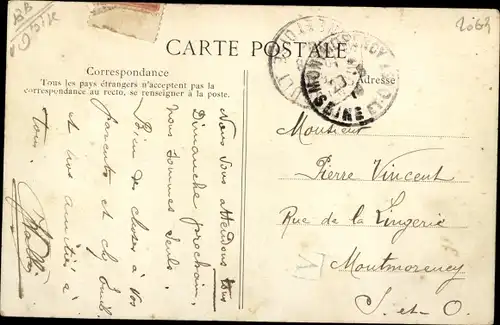 2063
CARTE POSTALE
Correspondance
Tous les pays étrangers n'acceptent pas la
correspondance au recto, se renseigner à la poste.
Adresse
MONTMORENCY
SEINE-ET-OISE
Nous vous attendons tous
Dimanche prochain,
nous sommes seuls.
Bien de choses à vos
parents et
et nos amitiés à
tous.
Monsieur
Pierre Vincent
Rue de la Lingerie
Montmorency
S-et-O